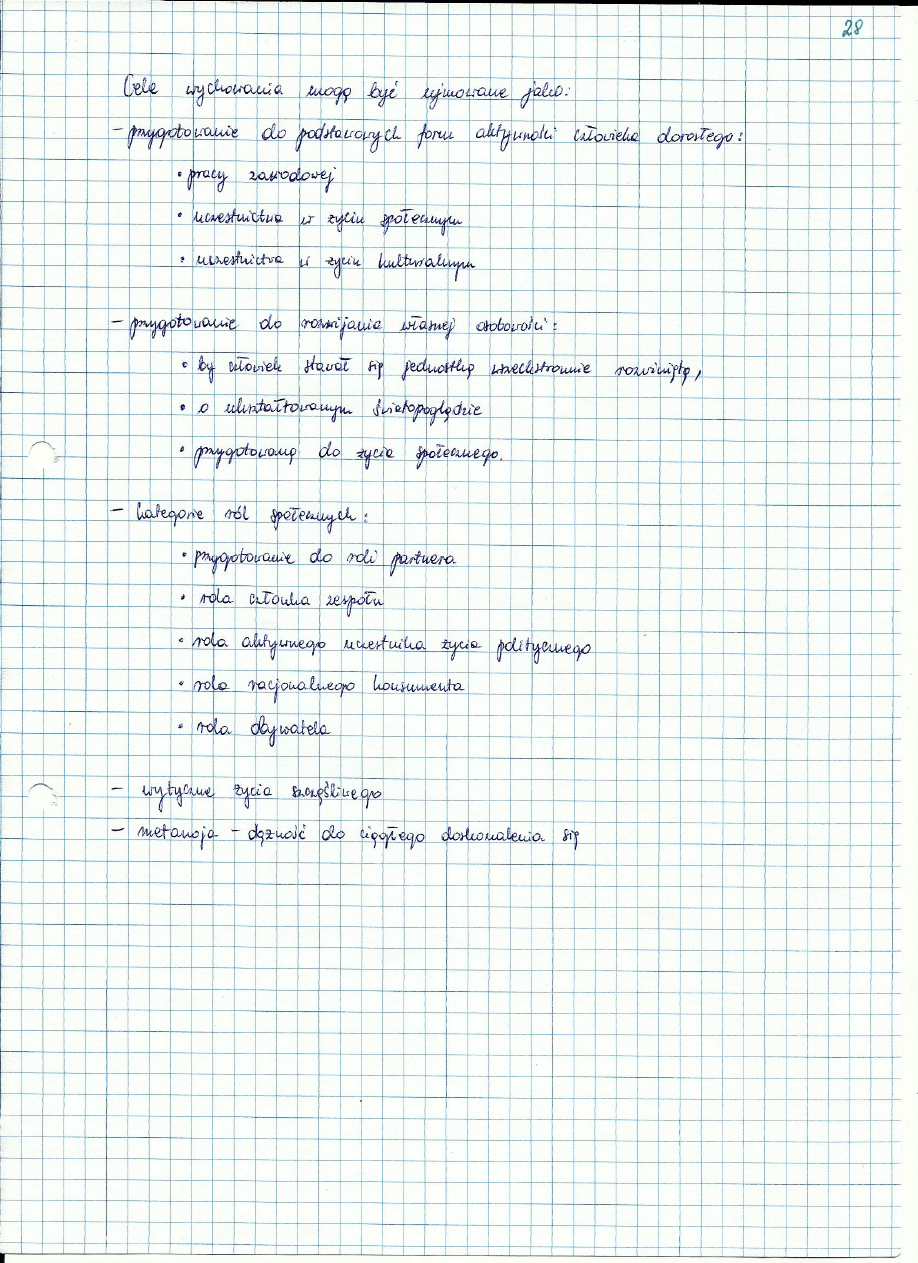 28
Cele wychowania mogą być ujmowane jako:
- przygotowanie do podstawowych form aktywności człowieka dorosłego:
• pracy zawodowej
• uczestnictwa w życiu społecznym
• uczestnictwa w życiu kulturalnym
- przygotowanie do rozwijania własnej osobowości:
• by człowiek stawał się jednostką wszechstronnie rozwiniętą,
• o ukształtowanym światopoglądzie
• przygotowaną do życia społecznego.
- kategorie ról społecznych:
• przygotowanie do roli partnera
• rola członka zespołu
• rola aktywnego uczestnika życia politycznego
• rola racjonalnego konsumenta
• rola obywatela
- wytyczne życia szczęśliwego
- metanoja - dążność do ciągłego doskonalenia się